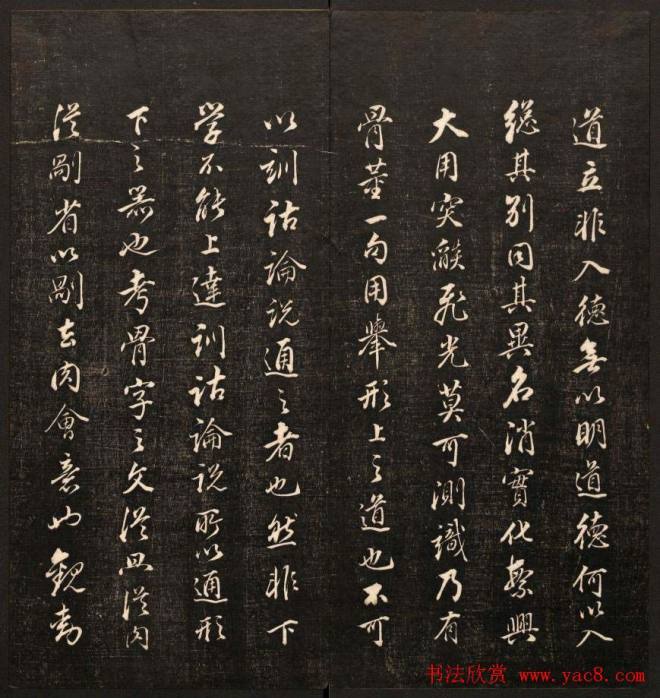 道立非入德無以明道德何以入
總其別同其異名消實化繫興
大用突爾飛光莫可測識乃有
骨董一句用舉形上之道也不可
以訓詁論說通之者也然非下
学不能上達訓詁論說所以通形
下之器也考骨字之文從冎從肉
從剮省以剮去肉會意也觀
书法欣赏 www.yac8.com